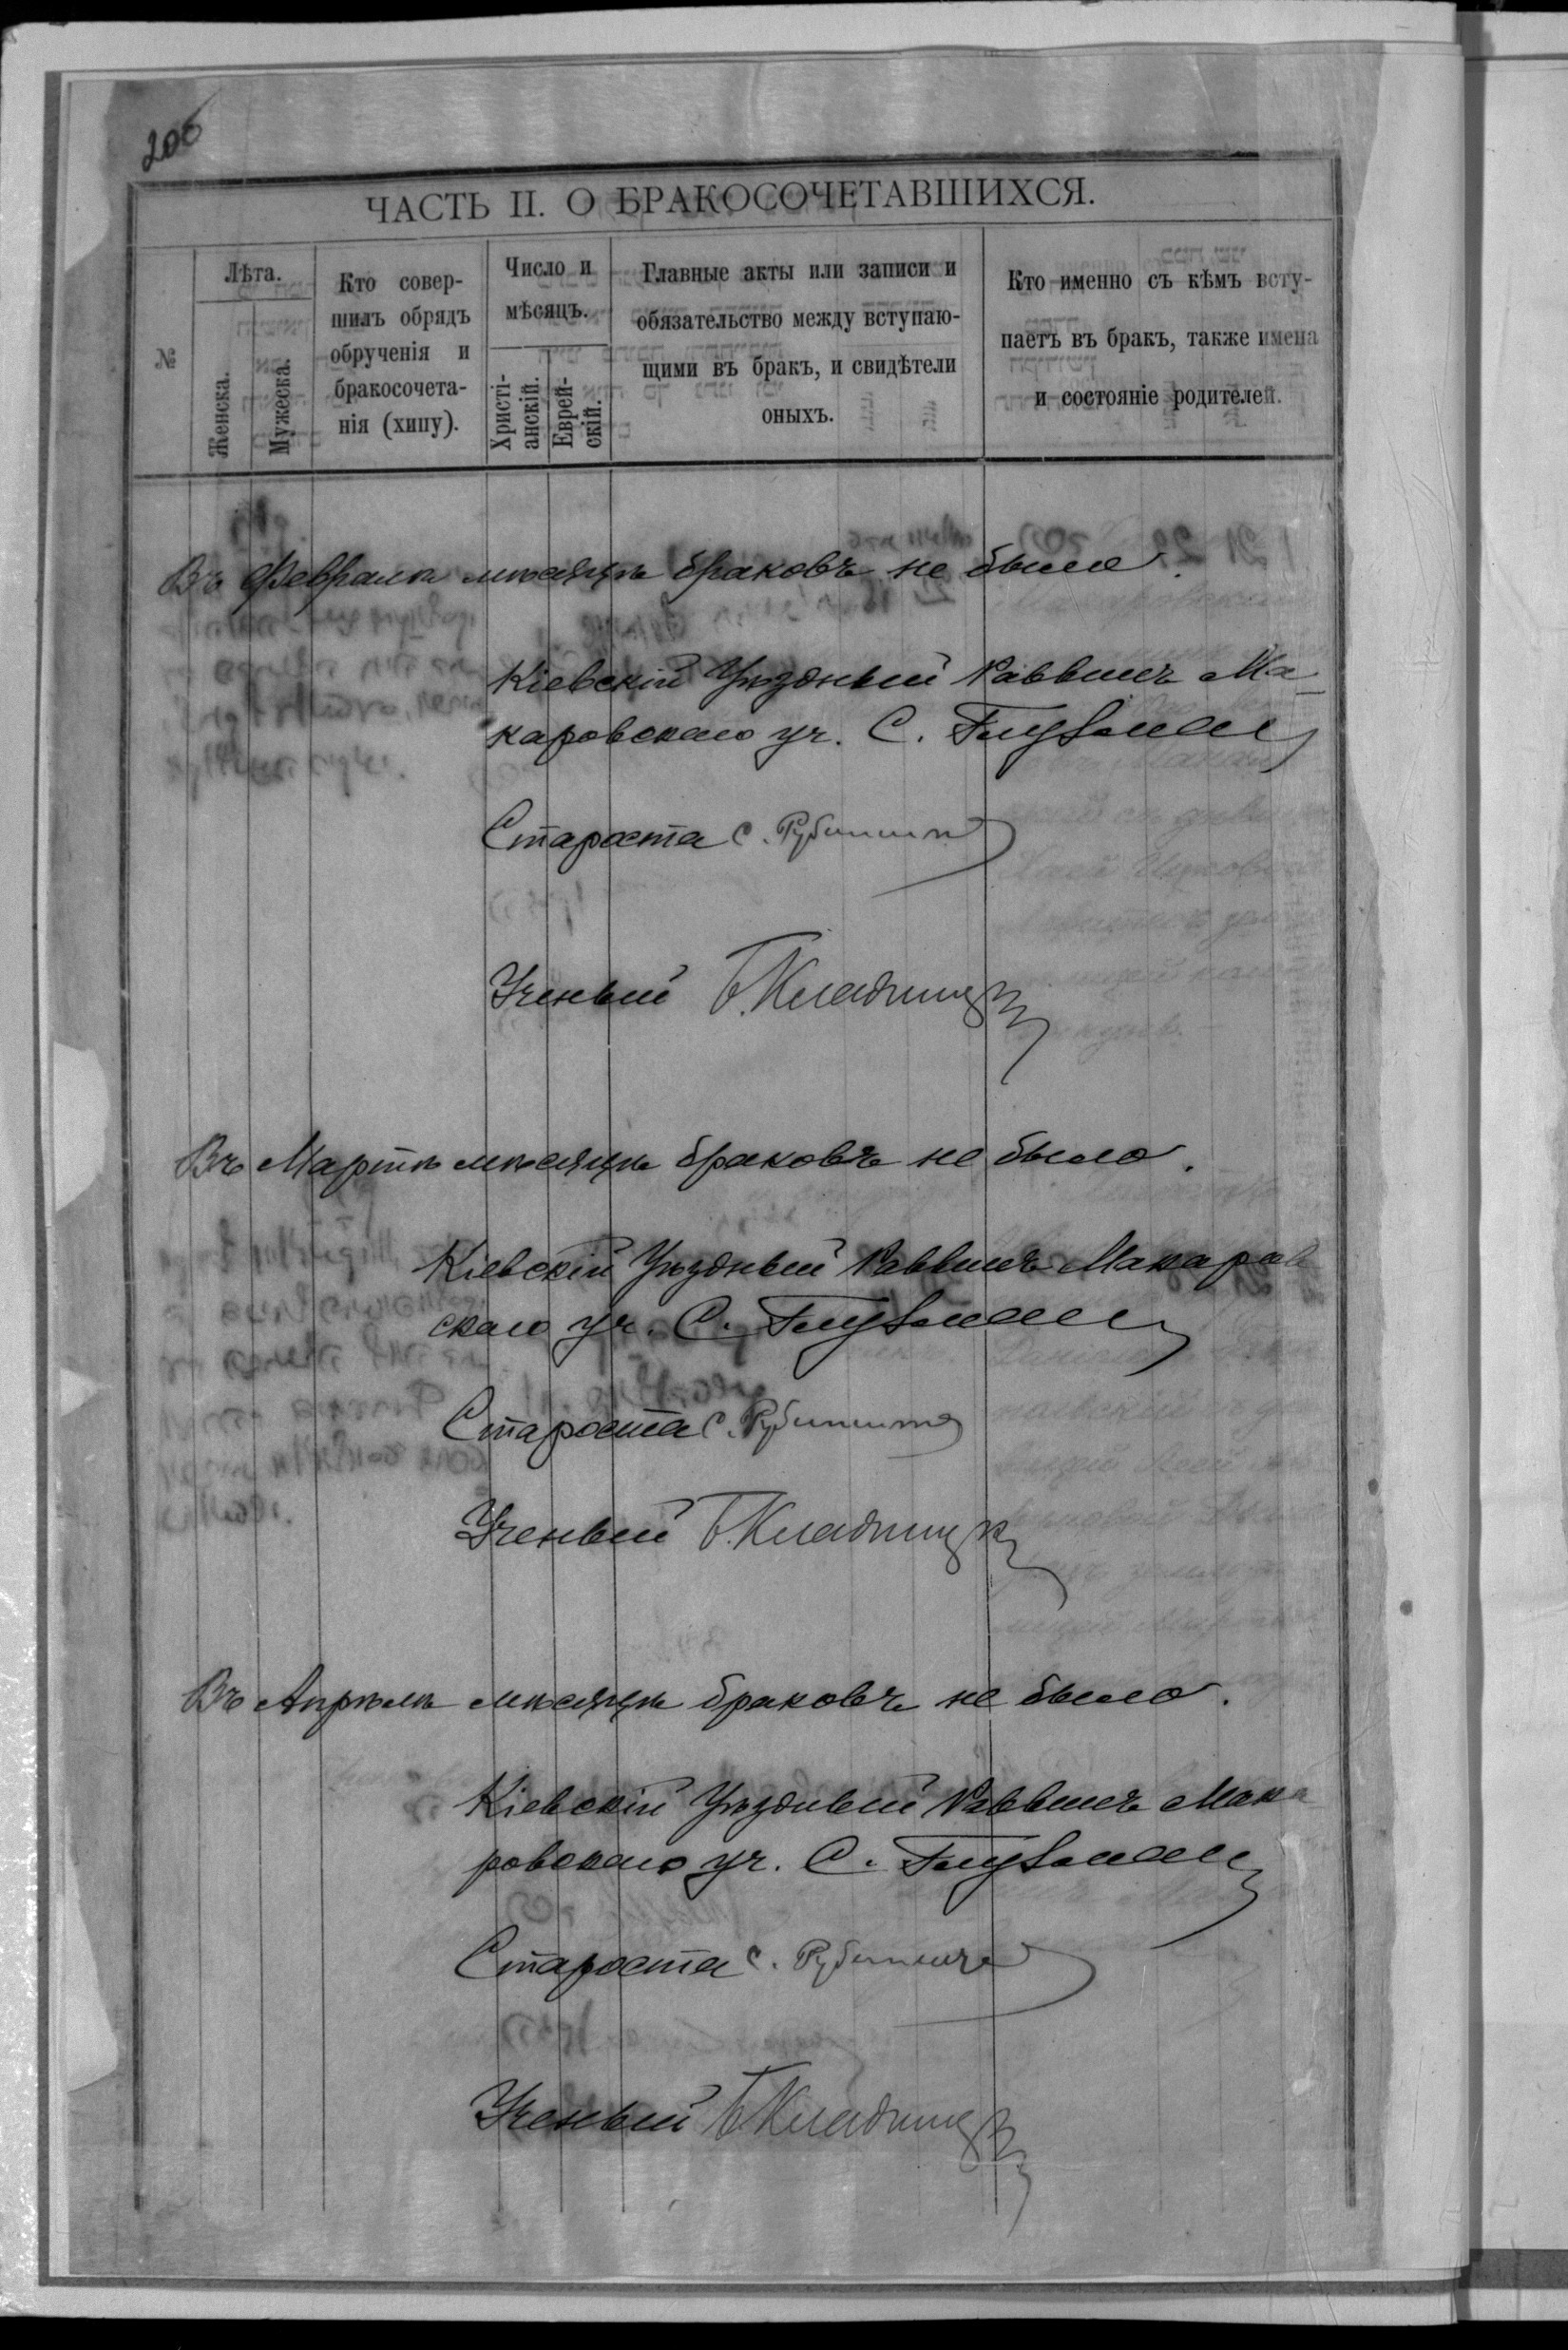 206
ЧАСТЬ II. О БРАКОСОЧЕТАВШИХСЯ.
№
Лѣта.
Женска.
Мужеска.
Кто совер-
шилъ обрядъ
обрученія и
бракосочета-
нія (хипу).
Число и
мѣсяцъ.
Христі-
анскій.
Еврей-
скій.
Главные акты или записи и
обязательство между вступаю-
щими въ бракъ, и свидѣтели
оныхъ.
Кто именно съ кѣмъ всту-
паетъ въ бракъ, также имена
и состояніе родителей.
Въ Февралѣ мѣсяцѣ браковъ не было.
Кіевскій Уѣздный Раввинъ Ма-
каровскаго уч. С.
Староста С.
Ученый Б.
Въ Мартѣ мѣсяцѣ браковъ не было.
Кіевскій Уѣздный Раввинъ Макаров
скаго уч. С.
Староста С.
Ученый Б.
Въ Апрѣлѣ мѣсяцѣ браковъ не было.
Кіевскій Уѣздный Раввинъ Мака
ровскаго уч. С.
Староста С.
Ученый Б.